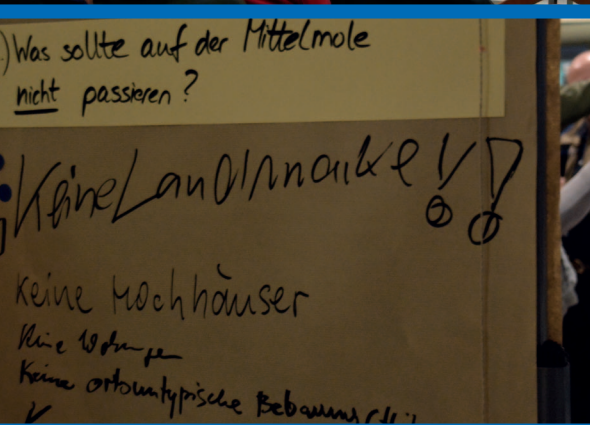 .) Was sollte auf der Mittelmole
nicht passieren?
Keine Landmarke!!
Keine Hochhäuser
Keine Wohnungen
Keine ortsuntypische